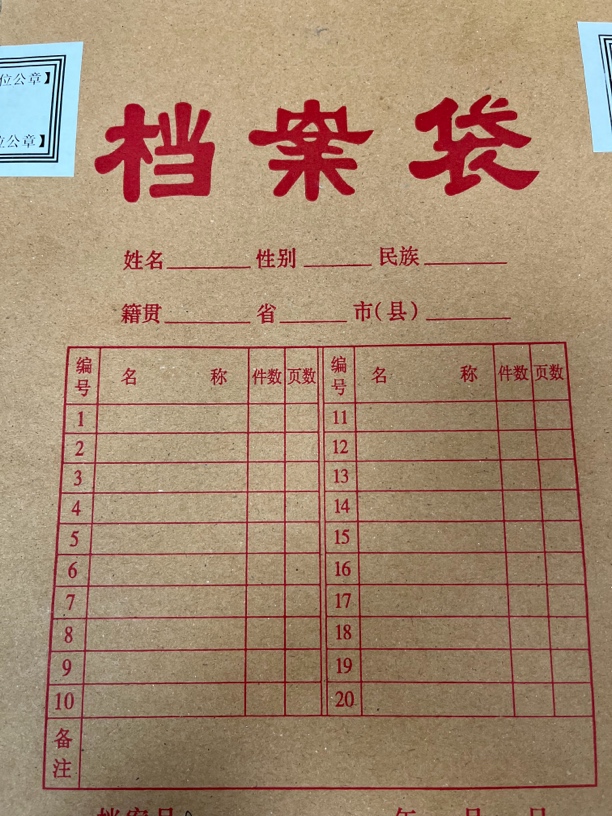 位公章】
位公章】
档案袋
姓名 性别 民族
籍贯 省 市(县)
编号 名 称 件数 页数 编号 名 称 件数 页数
1 11
2 12
3 13
4 14
5 15
6 16
7 17
8 18
9 19
10 20
备注
档案号 年 月 日